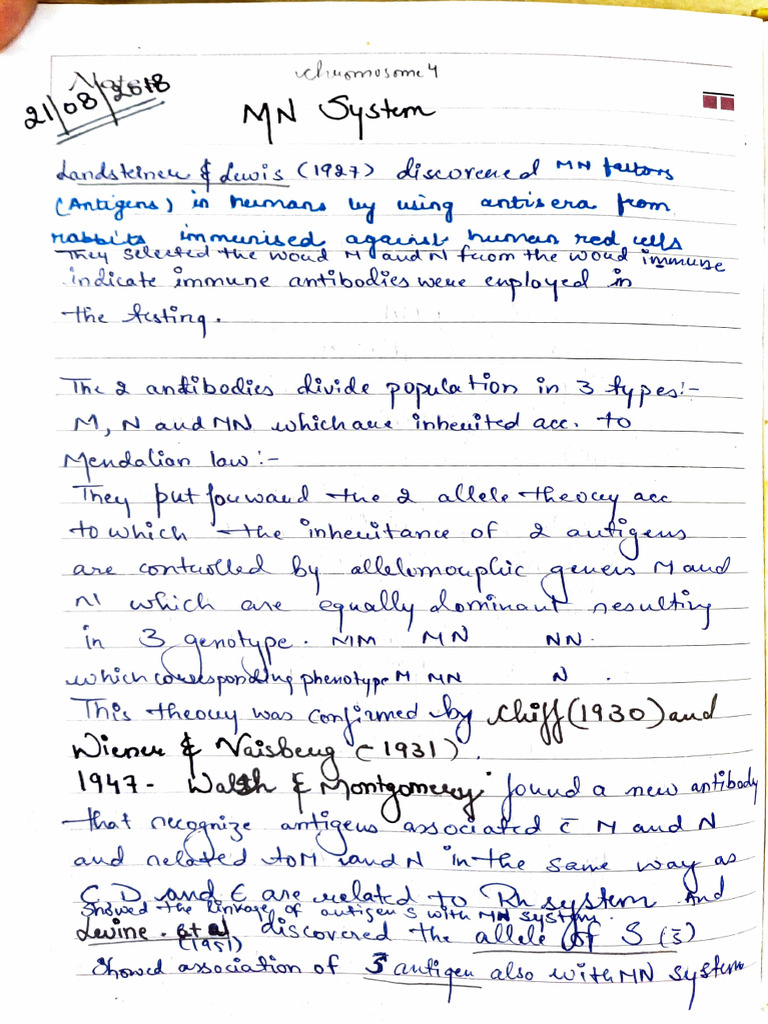 chromosome 4
21/08/2018
MN System
Landsteiner & Lewis (1927) discovered MN factors
(Antigens) in humans by using antisera from
rabbits immunised against human red cells
They selected the word M and N from the word immune
indicate immune antibodies were employed in
the testing.
The 2 antibodies divide population in 3 types:-
M, N and MN which are inherited acc. to
Mendalian law:-
They put forward the 2 allele theory acc
to which the inheritance of 2 antigens
are controlled by allelomorphic geners M and
N which are equally dominant resulting
in 3 genotype. MM MN NN.
which corresponding phenotype M MN N .
This theory was confirmed by Chiff (1930) and
Wiener & Vaisberg (1931).
1947- Walsh & Montgomery found a new antibody
that recognize antigens associated c̄ M and N
and related to M and N in the same way as
C D and E are related to Rh system And
Showed the linkage of antigen S with MN system.
Levine. et al discovered the allele of S (s̄)
(1951)
Showed association of s̄ antigen also with MN system